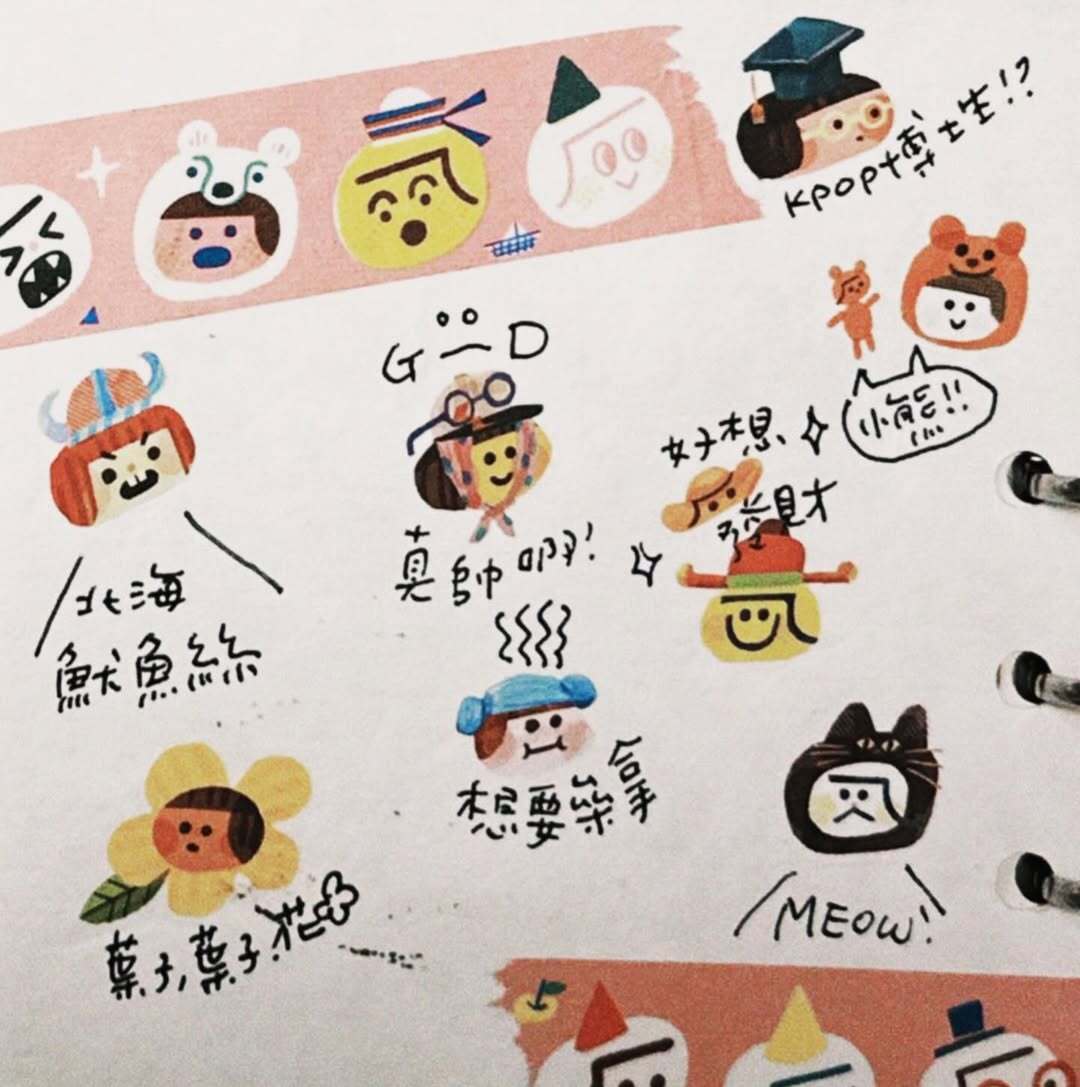 Kpop博士生!?
G D
小熊!!
好想
發財
真帥啊!
北海
魷魚絲
想要榮拿
葉子,葉子.花
MEOW!